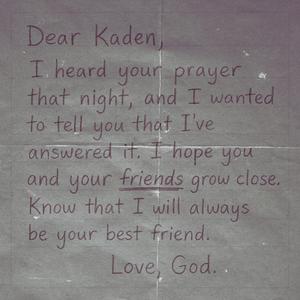 Dear Kaden,
I heard your prayer
that night, and I wanted
to tell you that I've
answered it. I hope you
and your friends grow close.
Know that I will always
be your best friend.
Love, God.